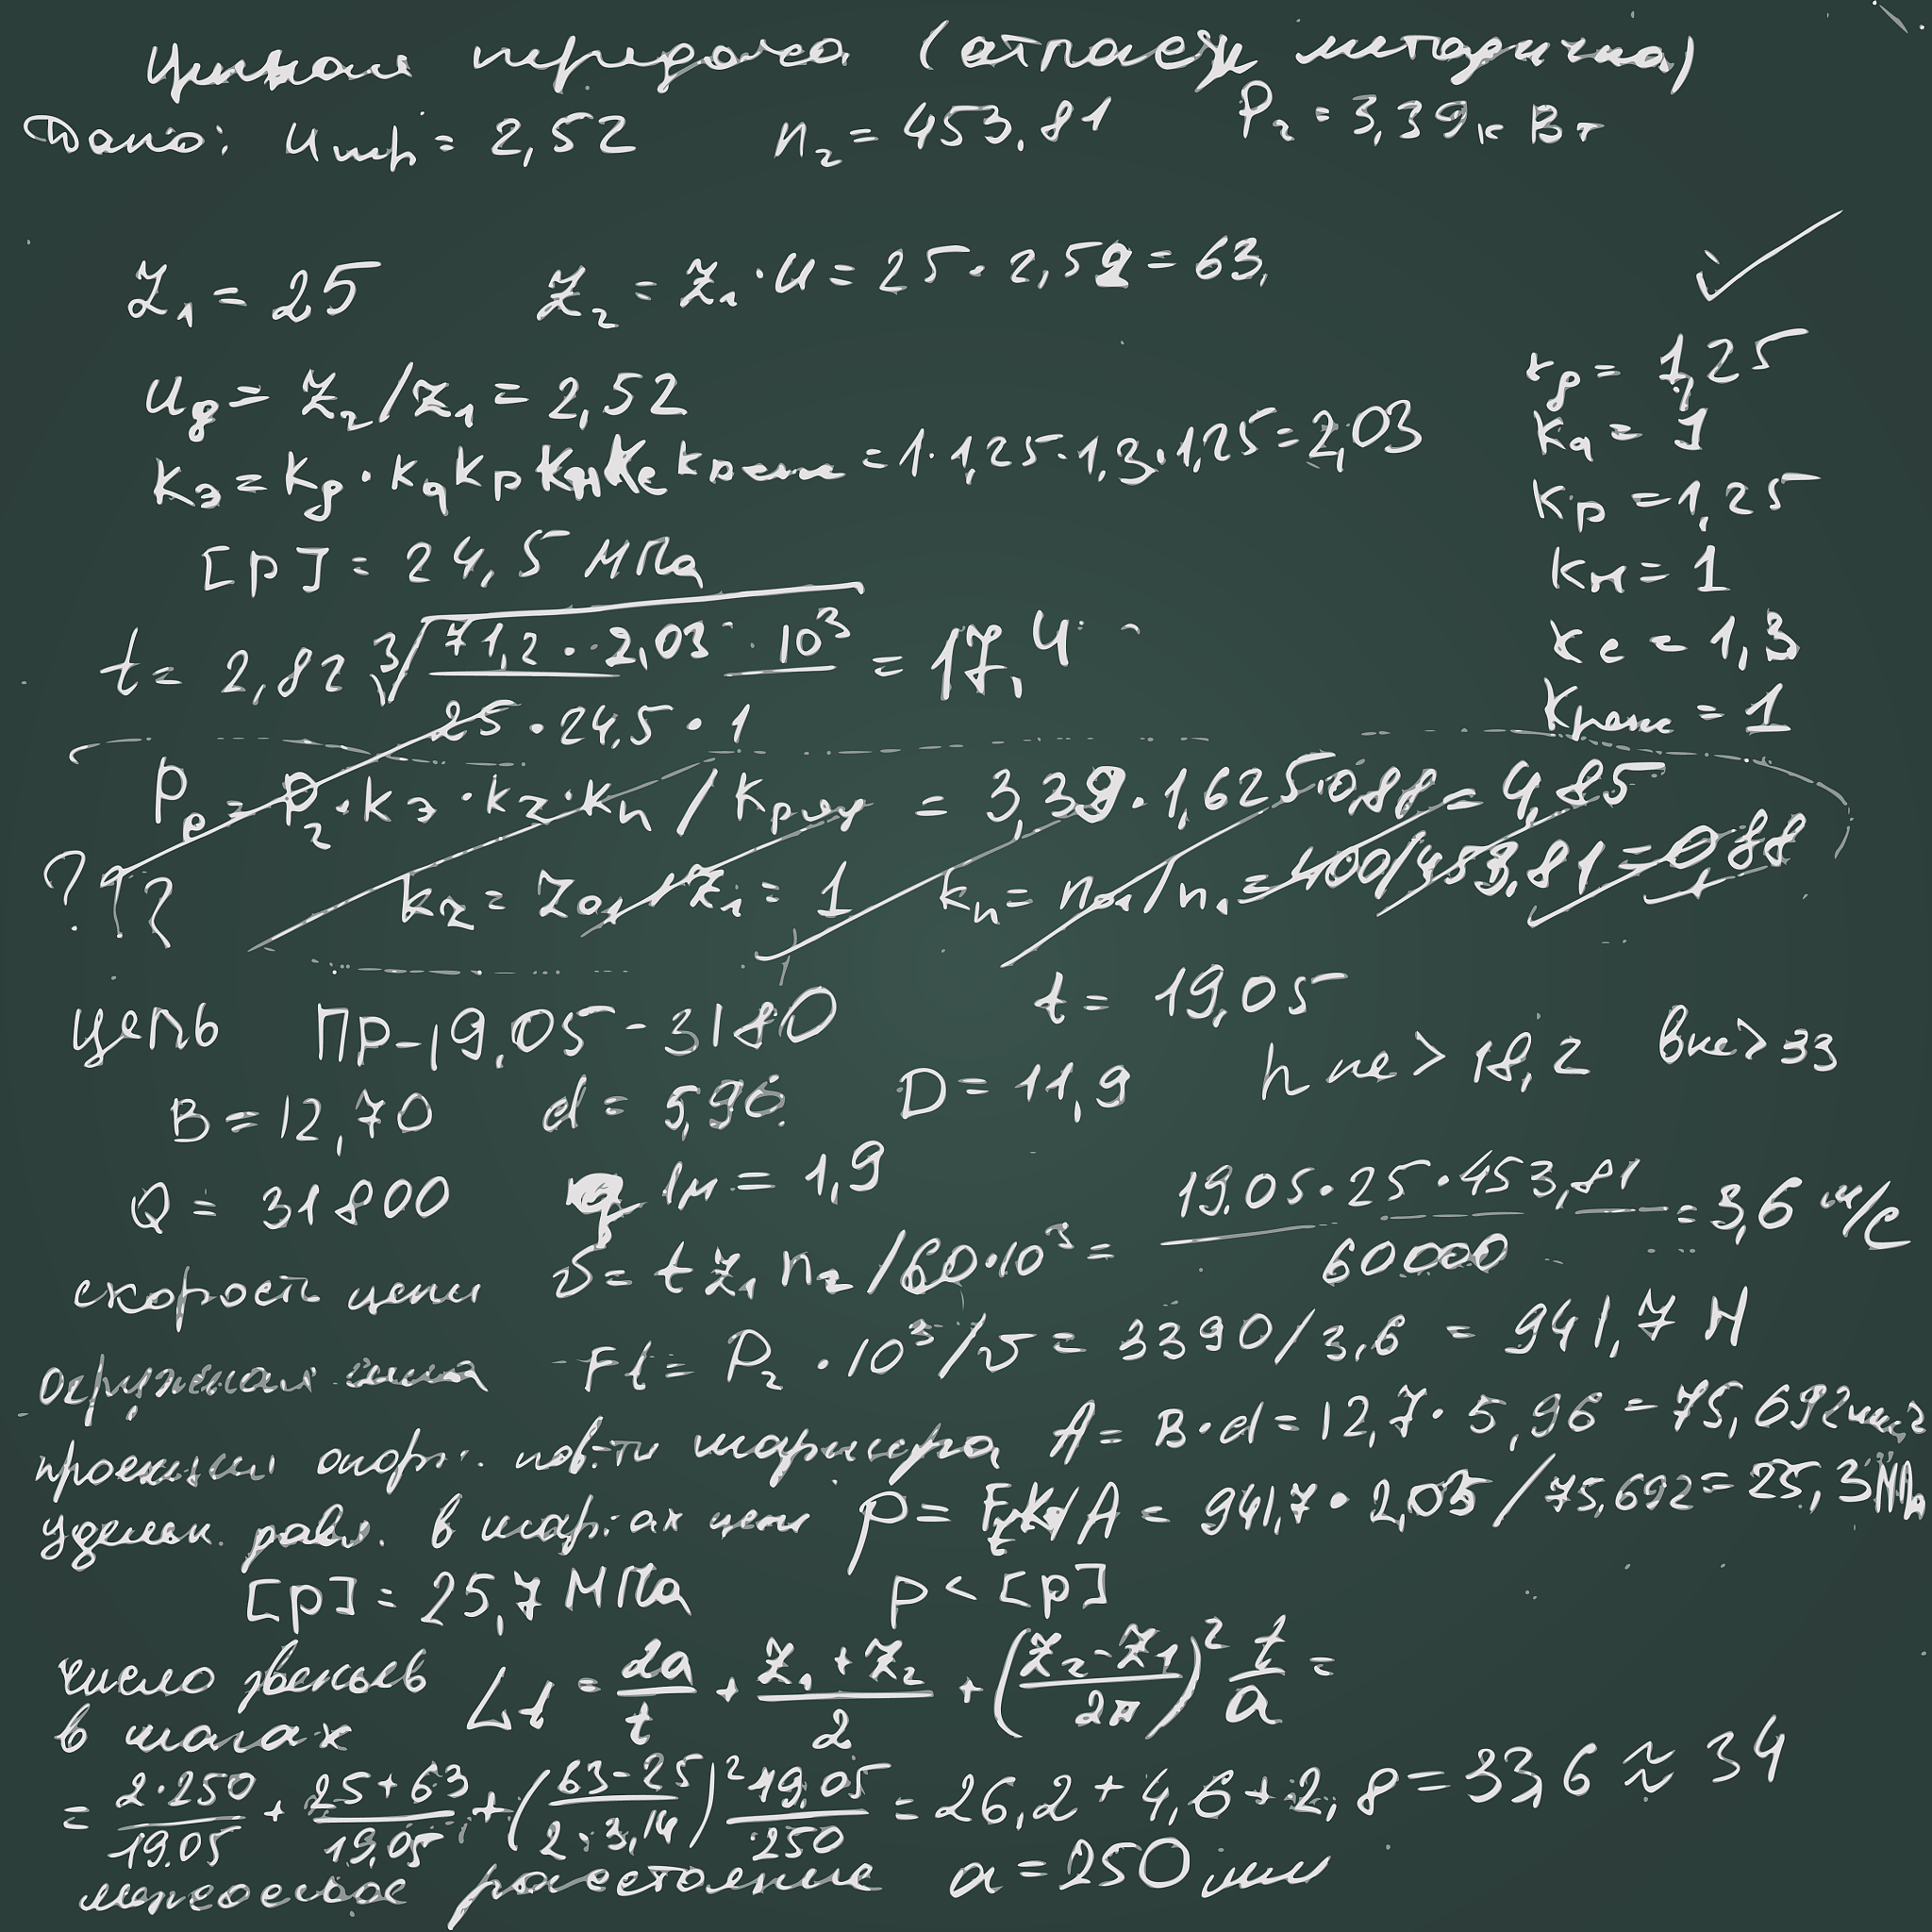 Цепная передача (отпаецк методичка)
Дано: Uцпр = 2,52 n₂ = 453,81 P₂ = 3,39 кВт
Z₁ = 25 Z₂ = Z₁·U = 25·2,52 = 63,
Uд = Z₂/Z₁ = 2,52 кд = 1,25
Kэ = Kд·Kа Kр Kн Kс Kреж = 1·1,25·1,3·1,25 = 2,03 Kа = 1
Kр = 1,25
[p] = 24,5 МПа Kн = 1
t = 2,82 ∛(71,2·2,03·10³ / 25·24,5·1) = 17,4 Kс = 1,3
Kреж = 1
Pр = P₂·Kэ·Kz·Kn/Kряд = 3,39·1,625·0,88 = 4,85
??? Kz = Z01/Z₁ = 1 Kn = n01/n₁ = 400/453,81 = 0,88
цепь ПР-19,05-3180 t = 19,05
B = 12,70 d = 5,96 D = 11,9 h не > 18,2 b не > 33
Q = 31800 q 1м = 1,9
скорость цепи V = t z₁ n₂/60·10³ = 19.05·25·453,81 / 60000 = 3,6 м/с
окружная сила Ft = P₂·10³/V = 3390/3,6 = 941,7 Н
проекции опорн. пов-ти шарнира A = B·d = 12,7·5,96 = 75,692 мм²
уделен. давл. в шар-ах цепи p = Ft Kэ/A = 941,7·2,03/75,692 = 25,3 МПа
[p] = 25,7 МПа p < [p]
число звеньев Lt = 2a/t + (Z₁+Z₂)/2 + ((Z₂-Z₁)/2π)² t/a =
в шагах
= 2·250/19.05 + (25+63)/19,05 + ((63-25)/2·3,14)² 19,05/250 = 26,2 + 4,6 + 2,8 = 33,6 ≈ 34
межосевое расстояние a = 250 мм